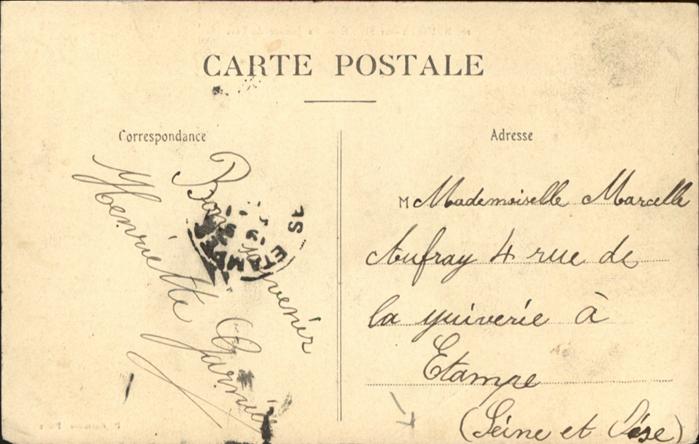 CARTE POSTALE
Correspondance
Adresse
Bon
venir
Henriette Garnier
ETAMPES
M Mademoiselle Marcelle
Aufray 4 rue de
la yuiverie à
Etampe
(Seine et Oise)